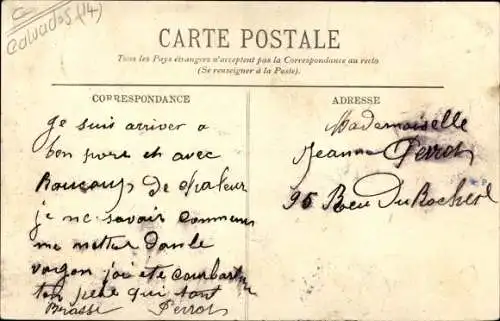 Calvados (14)
CARTE POSTALE
Tous les Pays étrangers n'acceptent pas la Correspondance au recto
(Se renseigner à la Poste).
CORRESPONDANCE
ADRESSE
je suis arriver a
bon port et avec
Boucoup de chaleur
je ne savoir commens
me metter Dan le
vagon j'ai ete courbatu
ton père qui tant
Brasse Perrot
Mademoiselle
Jeanne Perrot
95 Rue Du Rocher